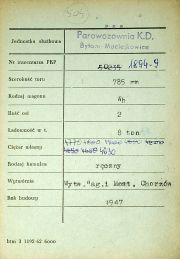 (504)
P K P
Jednostka służbowa
Parowozownia K.D.
Bytom-Maciejkowice
Nr inwentarza PKP 1894-9
Szerokość toru 785 mm
Rodzaj wagonu Wb
Ilość osi 2
Ładowność w t. 8 ton
Ciężar własny
4030
Rodzaj hamulca ręczny
Wytwórnia Wytw. Wag. i Most. Chorzów
Rok budowy 1947